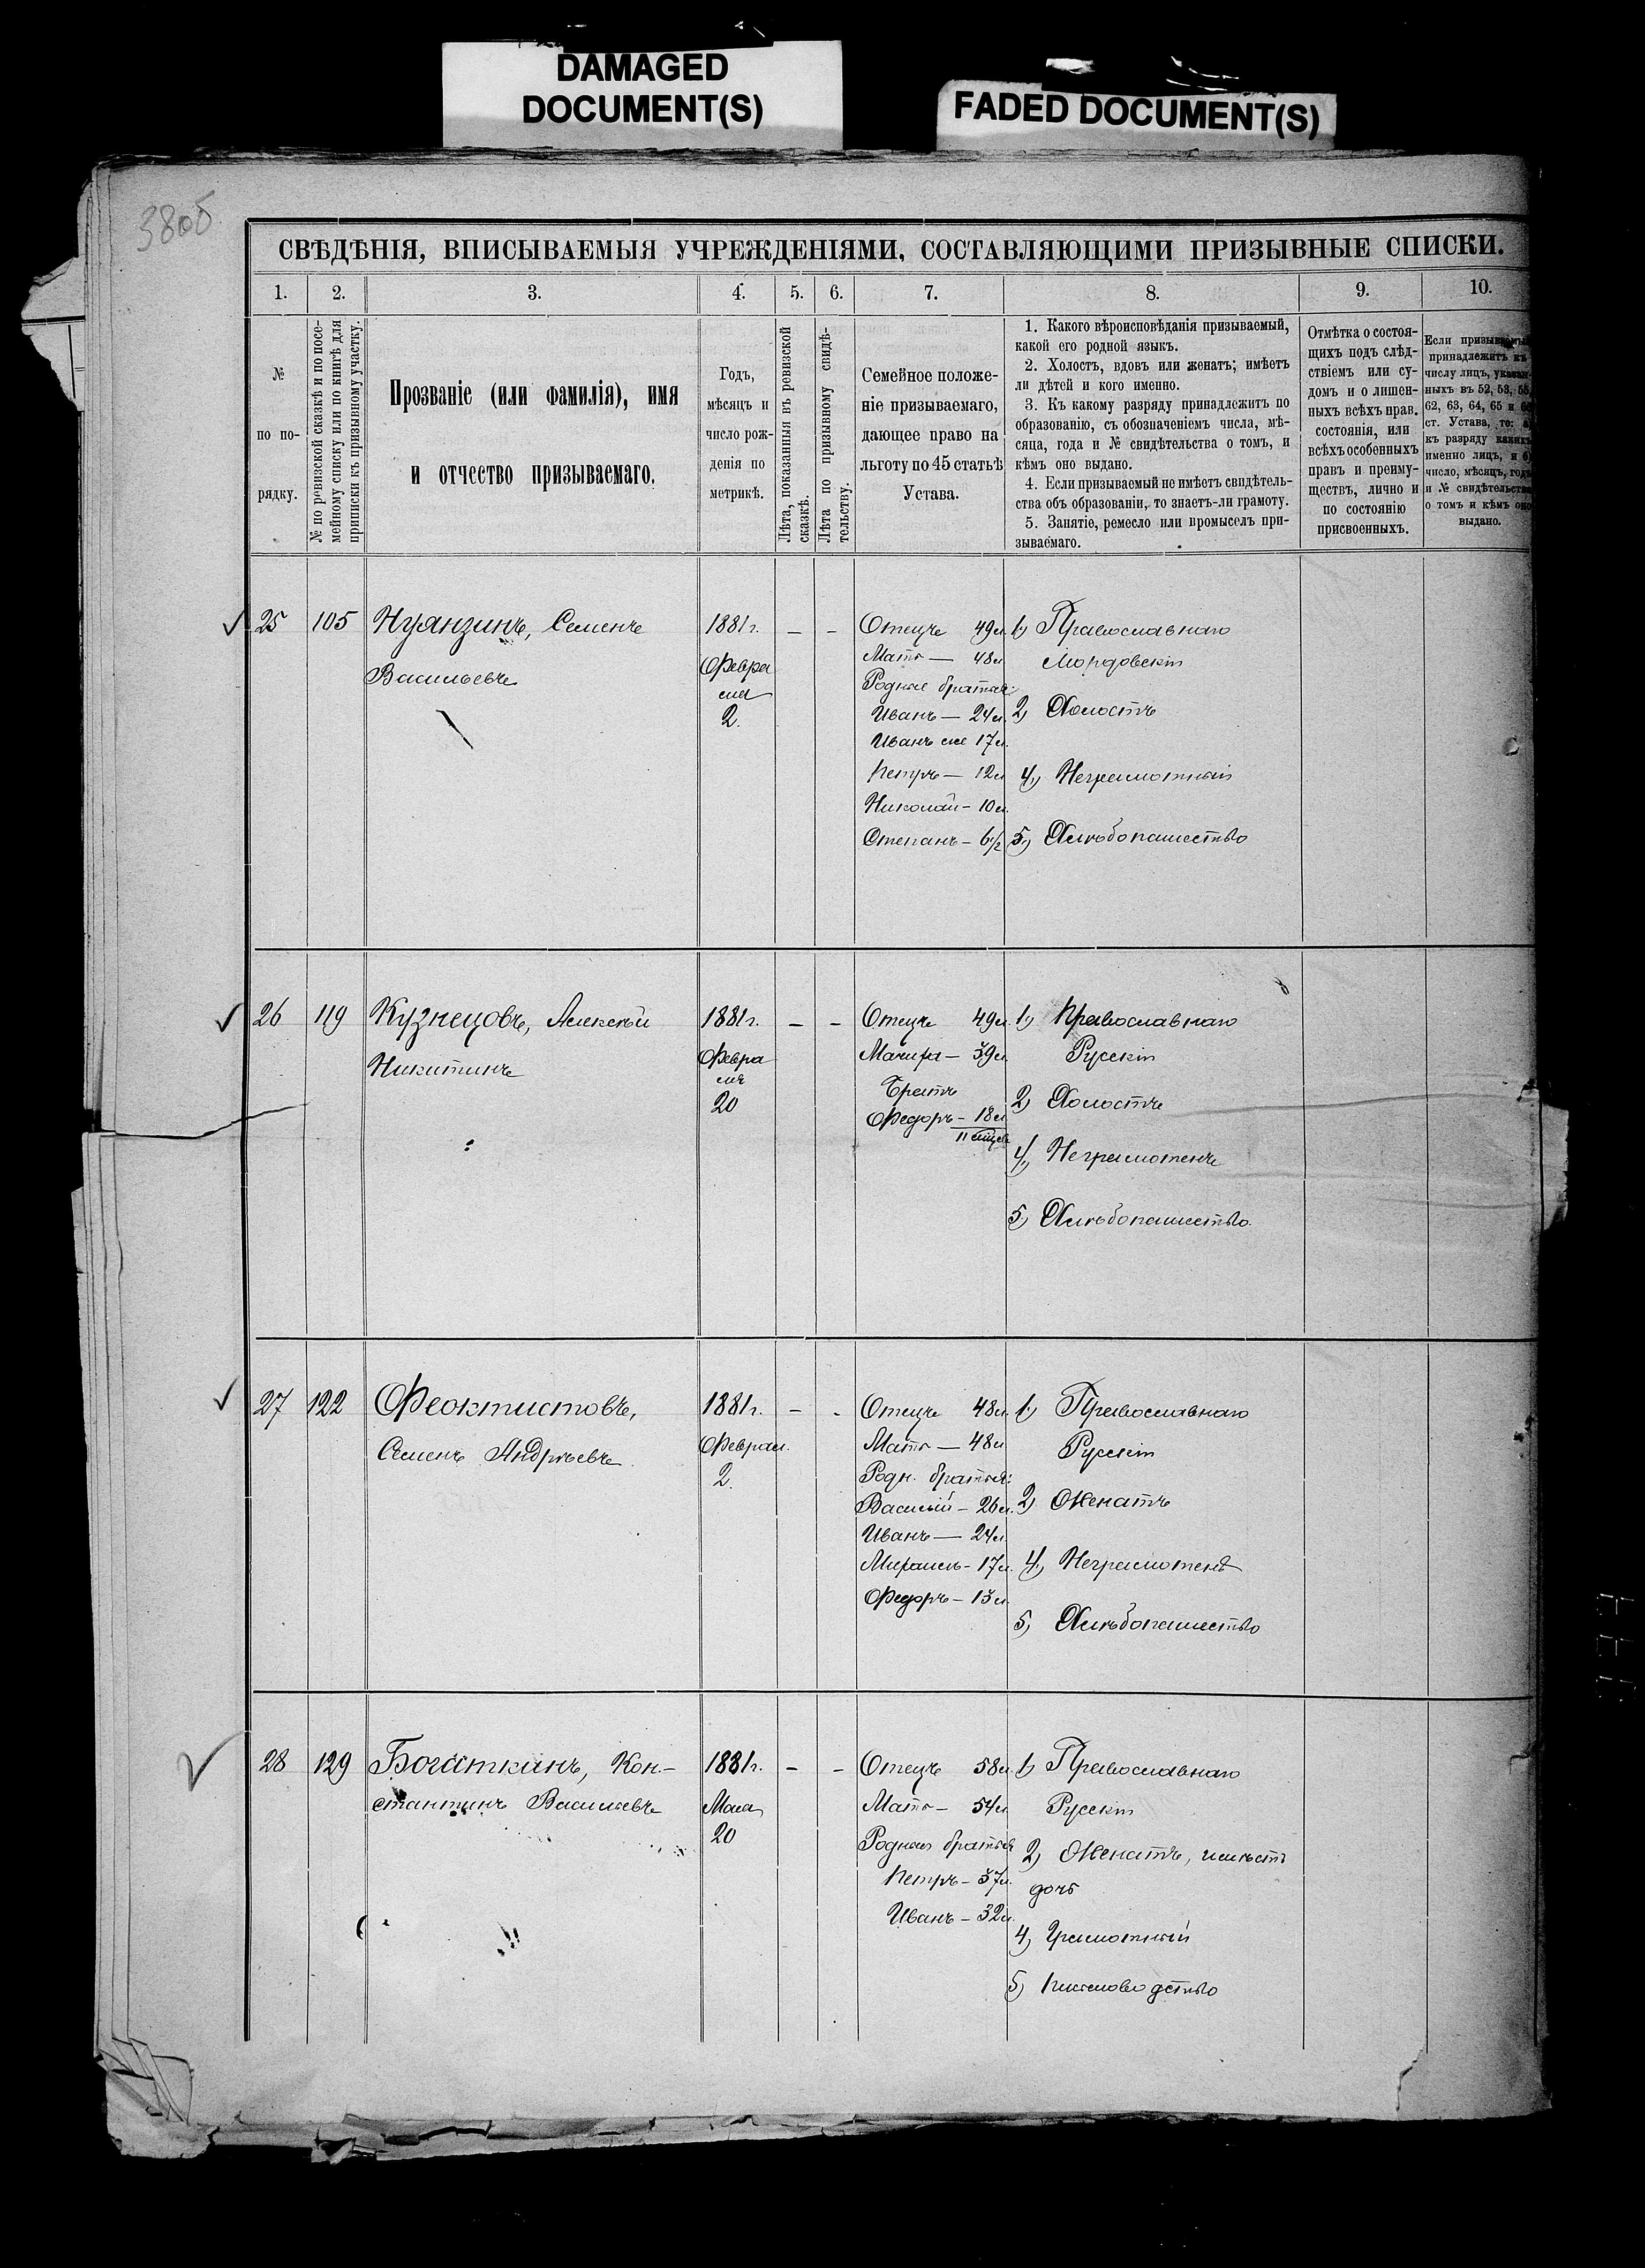 DAMAGED
DOCUMENT(S)
FADED DOCUMENT(S)
380б
СВѢДѢНІЯ, ВПИСЫВАЕМЫЯ УЧРЕЖДЕНІЯМИ, СОСТАВЛЯЮЩИМИ ПРИЗЫВНЫЕ СПИСКИ.
1. 2. 3. 4. 5. 6. 7. 8. 9. 10.
№
по по-
рядку.
№ по ревизской сказкѣ и по посе-
мейному списку или по книгѣ для
приписки къ призывному участку.
Прозваніе (или фамилія), имя
и отчество призываемаго.
Годъ,
мѣсяцъ и
число рож-
денія по
метрикѣ.
Лѣта, показанныя въ ревизской
сказкѣ.
Лѣта по призывному свидѣ-
тельству.
Семейное положе-
ніе призываемаго,
дающее право на
льготу по 45 статьѣ
Устава.
1. Какого вѣроисповѣданія призываемый,
какой его родной языкъ.
2. Холостъ, вдовъ или женатъ; имѣетъ
ли дѣтей и кого именно.
3. Къ какому разряду принадлежитъ по
образованію, съ обозначеніемъ числа, мѣ-
сяца, года и № свидѣтельства о томъ, и
кѣмъ оно выдано.
4. Если призываемый не имѣетъ свидѣтель-
ства объ образованіи, то знаетъ-ли грамоту.
5. Занятіе, ремесло или промыселъ при-
зываемаго.
Отмѣтка о состоя-
щихъ подъ слѣд-
ствіемъ или су-
домъ и о лишен-
ныхъ всѣхъ прав.
состоянія, или
всѣхъ особенныхъ
правъ и преиму-
ществъ, лично и
по состоянію
присвоенныхъ.
Если призываемый
принадлежитъ къ
числу лицъ, указан-
ныхъ въ 52, 53, 55,
62, 63, 64, 65 и
ст. Устава, то: а)
къ разряду какихъ
именно лицъ, и б)
число, мѣсяцъ, годъ
и № свидѣтельства
о томъ и кѣмъ оно
выдано.
25 105 Нуянзинъ, Семенъ
Васильевъ
1881г.
Февра
ля
2.
– –
Отецъ 49л.
Мать — 48л
Родные братья:
Иванъ — 24л.
Иванъ же 17л.
Петръ — 12л
Николай – 10л.
Степанъ – 6½
1) Православнаго
Мордовскій
2) Холостъ
4) Неграмотный
5) Хлѣбопашество
26 119 Кузнецовъ, Алексѣй
Никитинъ
1881г.
Февра
ля
20
– –
Отецъ 49л.
Мачиха – 39л.
Братъ
Федоръ – 18л
1) Православнаго
Русскій
2) Холостъ
4) Неграмотенъ
5) Хлѣбопашество.
27 122 Феоктистовъ,
Семенъ Андрѣевъ
1881г.
Феврал.
2.
– -
Отецъ 48л.
Мать — 48л
Родн. братья:
Василій – 26л.
Иванъ — 24л.
Михаилъ – 17л.
Федоръ – 13л.
1) Православнаго
Русскій
2) Женатъ
4) Неграмотенъ
5) Хлѣбопашество
28 129 Богаткинъ, Кон-
стантинъ Васильевъ
1881г.
Мая
20
– –
Отецъ 58л.
Мать – 54л
Родные братья
Петръ – 37л.
Иванъ – 32л.
1) Православнаго
Русскій
2) Женатъ, имѣетъ
дочь
4) Грамотный
5)